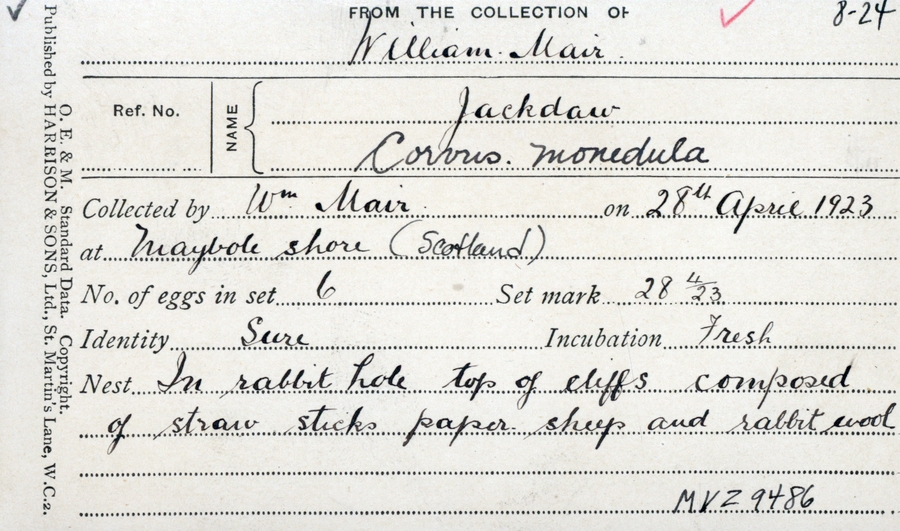 FROM THE COLLECTION OF
8-24
William Mair.
Ref. No.
NAME
Jackdaw
Corvus. monedula
Collected by Wm Mair. on 28th April 1923
at Maybole shore (Scotland)
No. of eggs in set 6 Set mark 28 4/23
Identity Sure Incubation Fresh
Nest In rabbit hole top of cliffs composed
of straw sticks paper sheep and rabbit wool
MVZ 9486
O. E. & M. Standard Data. Copyright.
Published by HARRISON & SONS, Ltd., St. Martin's Lane, W.C.2.